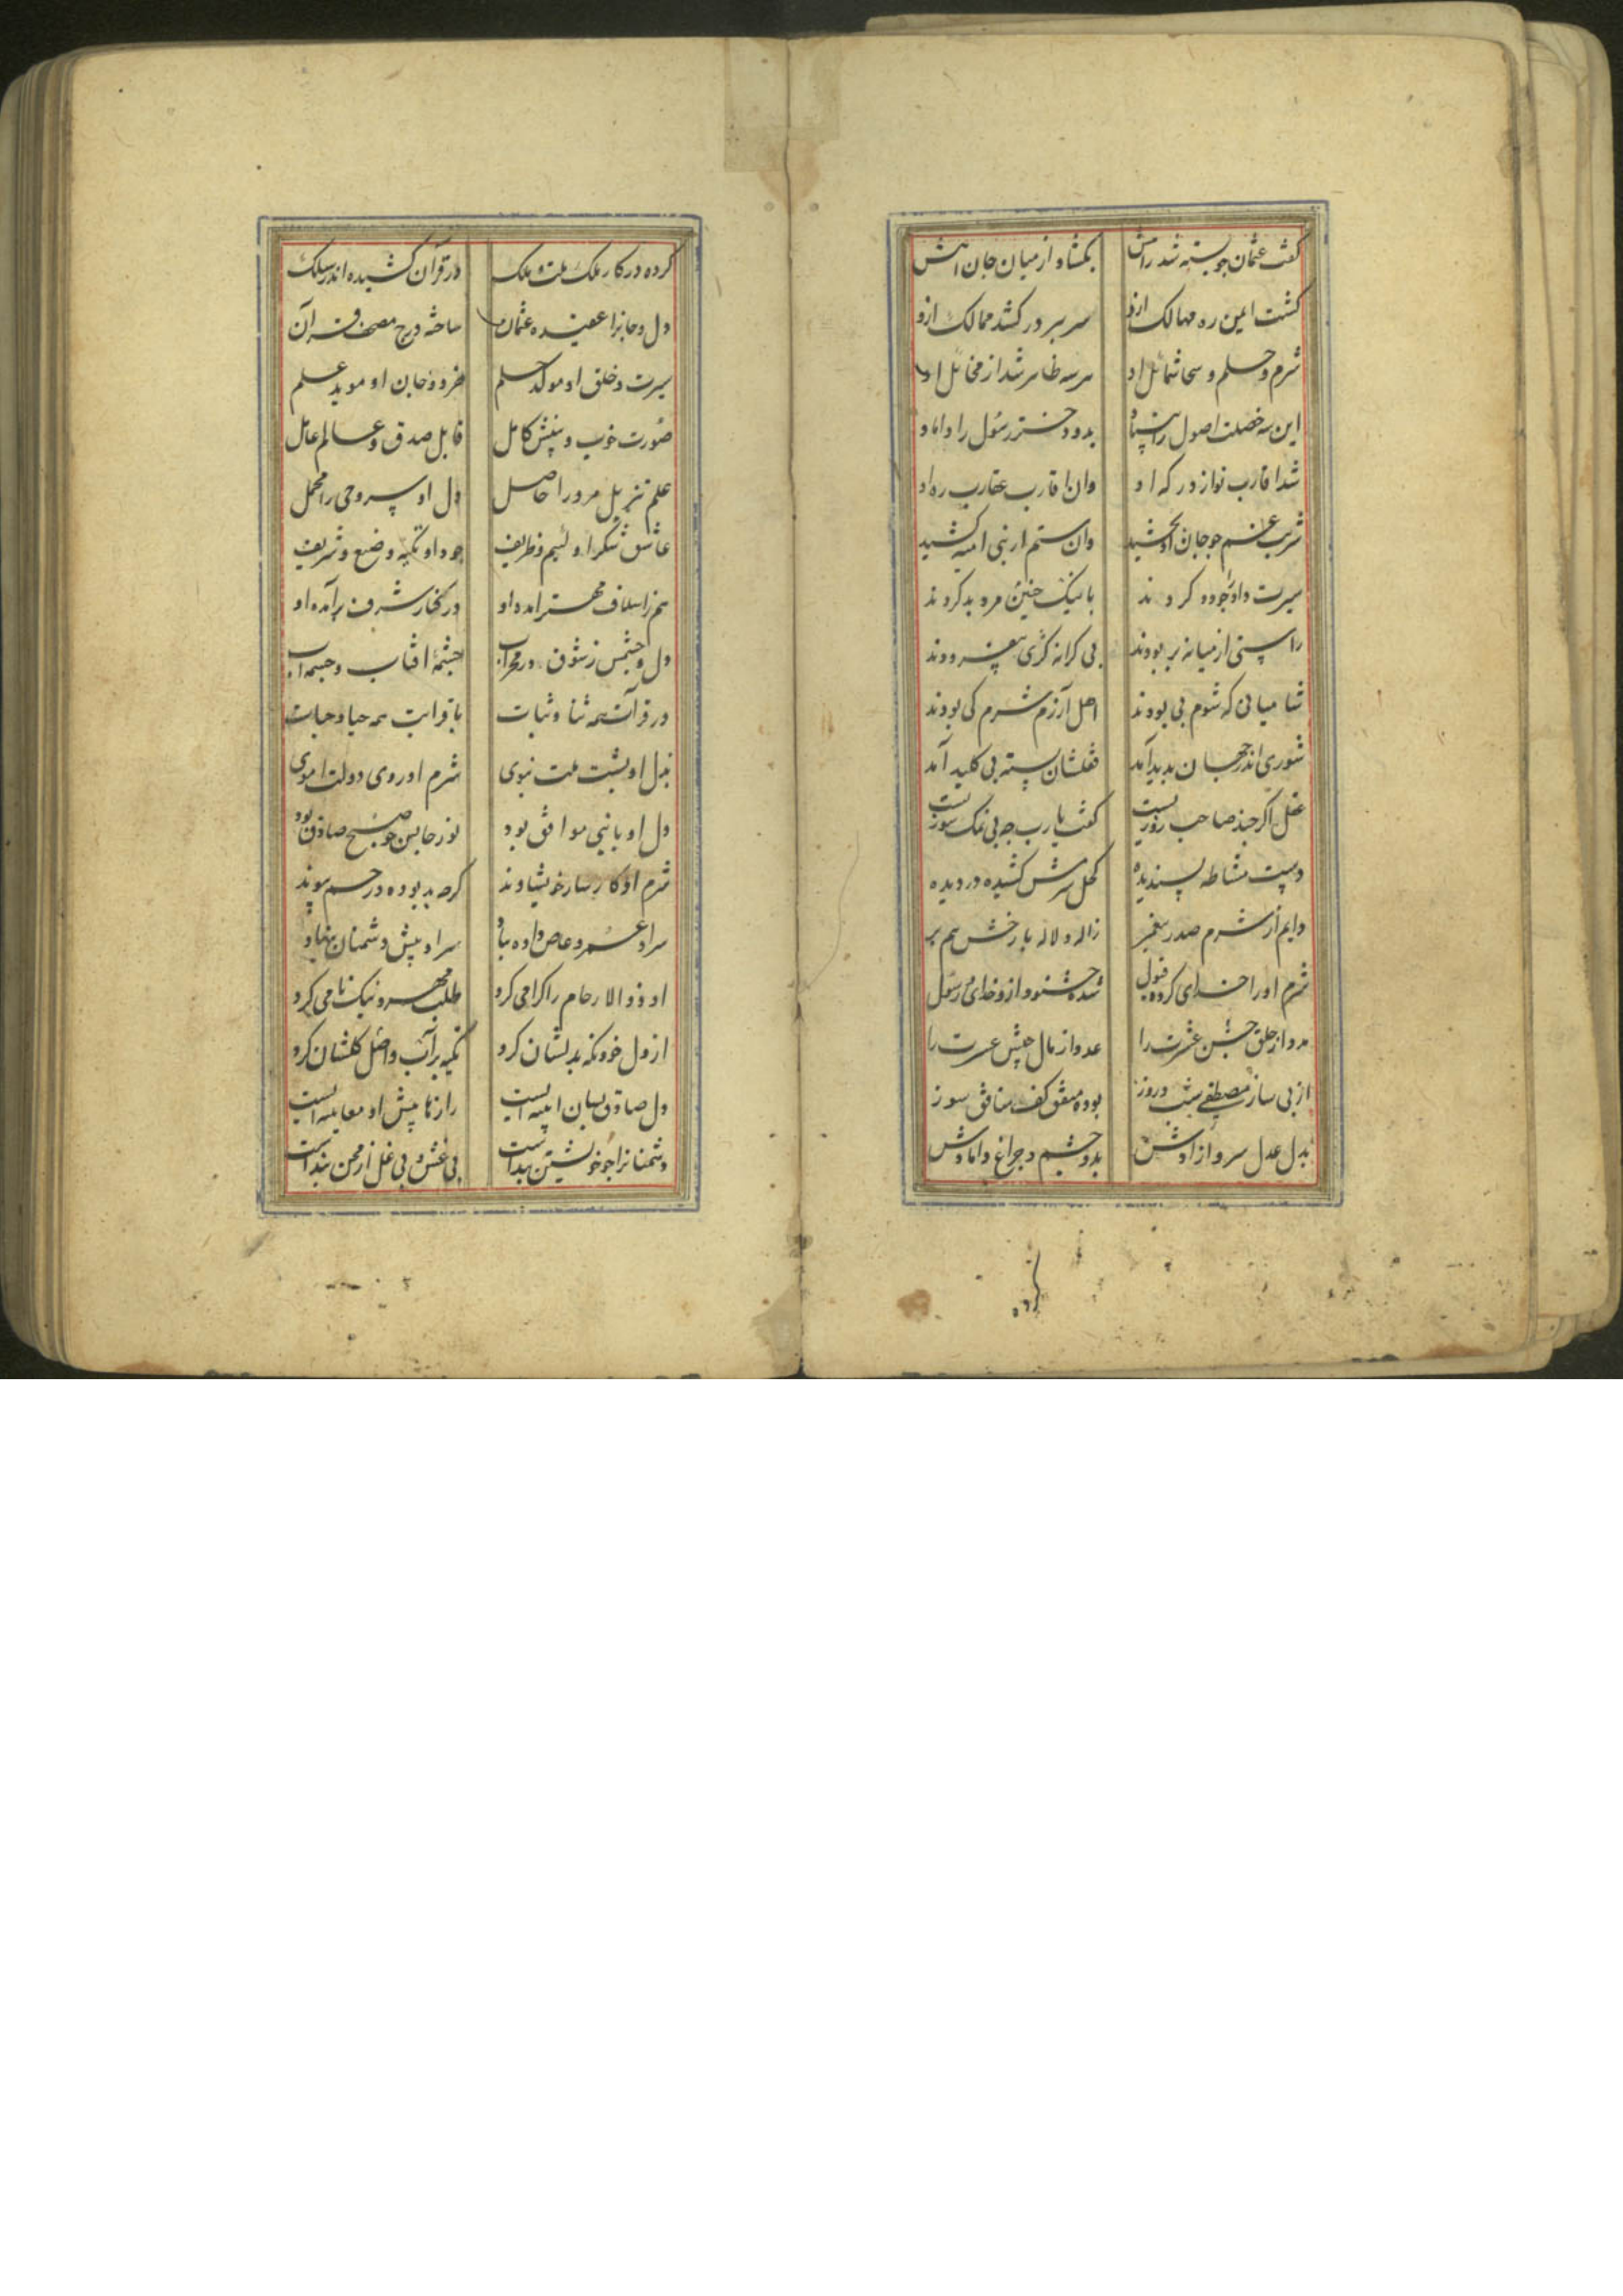 گفت عثمان چو بسته شد راهش بگشاد از میان جان آهش
گشت ایمن ره مهالک ازو سر بسر در کشد ممالک ازو
شرم و حلم و سخا شمائل او هر سه ظاهر شد از مخائل او
این سه خصلت اصول را بنیاد بدو دختر رسول را داماد
شد اقارب نواز درگه او وان اقارب عقارب ره او
شربت غم چو جان او بچشید وان ستم از بنی امیه کشید
سیرت داد چو ده کردند با نیک چنین مرد بد کردند
راستی از میانه بربودند بی کرانه کژی بیفزودند
شامیانی که شوم پی بودند اهل آزرم و شرم کی بودند
شوری اندر جهان پدید آمد قفلشان بسته بی کلید آمد
عقل اگر چند صاحب روزیست گفت یا رب چه بی نمک سوزیست
دست مشاطه پسندیده کحل شرمش کشیده در دیده
دایم از شرم صدر پیغمبر ژاله و لاله بار خش هم بر
شرم او را خدای کرده قبول شده خشنود ازو خدای و رسول
مدد از خلق جشن عشرت را عدد از مال جیش عسرت را
از پی ساز مصطفی شب و روز بوده منفق کف منافق سوز
بدل عدل سرو آزادش بدو چشم و چراغ دامادش
کرده
کرده در کار ملک ملت و ملک در قرآن کشیده اندر سلک
دل و جانرا عقیده عثمان ساخته درج مصحف قرآن
سیرت و خلق او موکد حلم خرد و جان او موید علم
صورت خوب و بینش کامل قابل صدق و عالم عامل
علم تنزیل مر ورا حاصل دل او سر وحی را محمل
عاشق شکر او لئیم و ظریف جود او تکیه وضیع و شریف
هم ز اسلاف مهتر آمده او در کنار شرف برآمده او
دل و چشمش ز شوق در محراب چشمه آفتاب و چشمه آب
در قرآنت همه ثنا و ثبات با قرابت همه حیا و حیات
نیل او پشت ملت نبوی شرم او روی دولت اموی
دل او با نبی موافق بود نور جانش چو صبح صادق بود
شرم او کار ساز خویشاوند گرچه بد بوده در رحم پیوند
سر او عمرو عاص داده بباد سر او پیش دشمنان بنهاد
او ذو الارحام را گرامی کرد طلب مهر و نیک نامی کرد
از دل خود نگه بدیشان کرد تکیه بر آب و اصل گلشان کرد
دل صادق بسان آینه ایست رازها پیش او معاینه ایست
دشمنانرا چو خویشتن پنداشت بی غش و بی غل از محن پنداشت